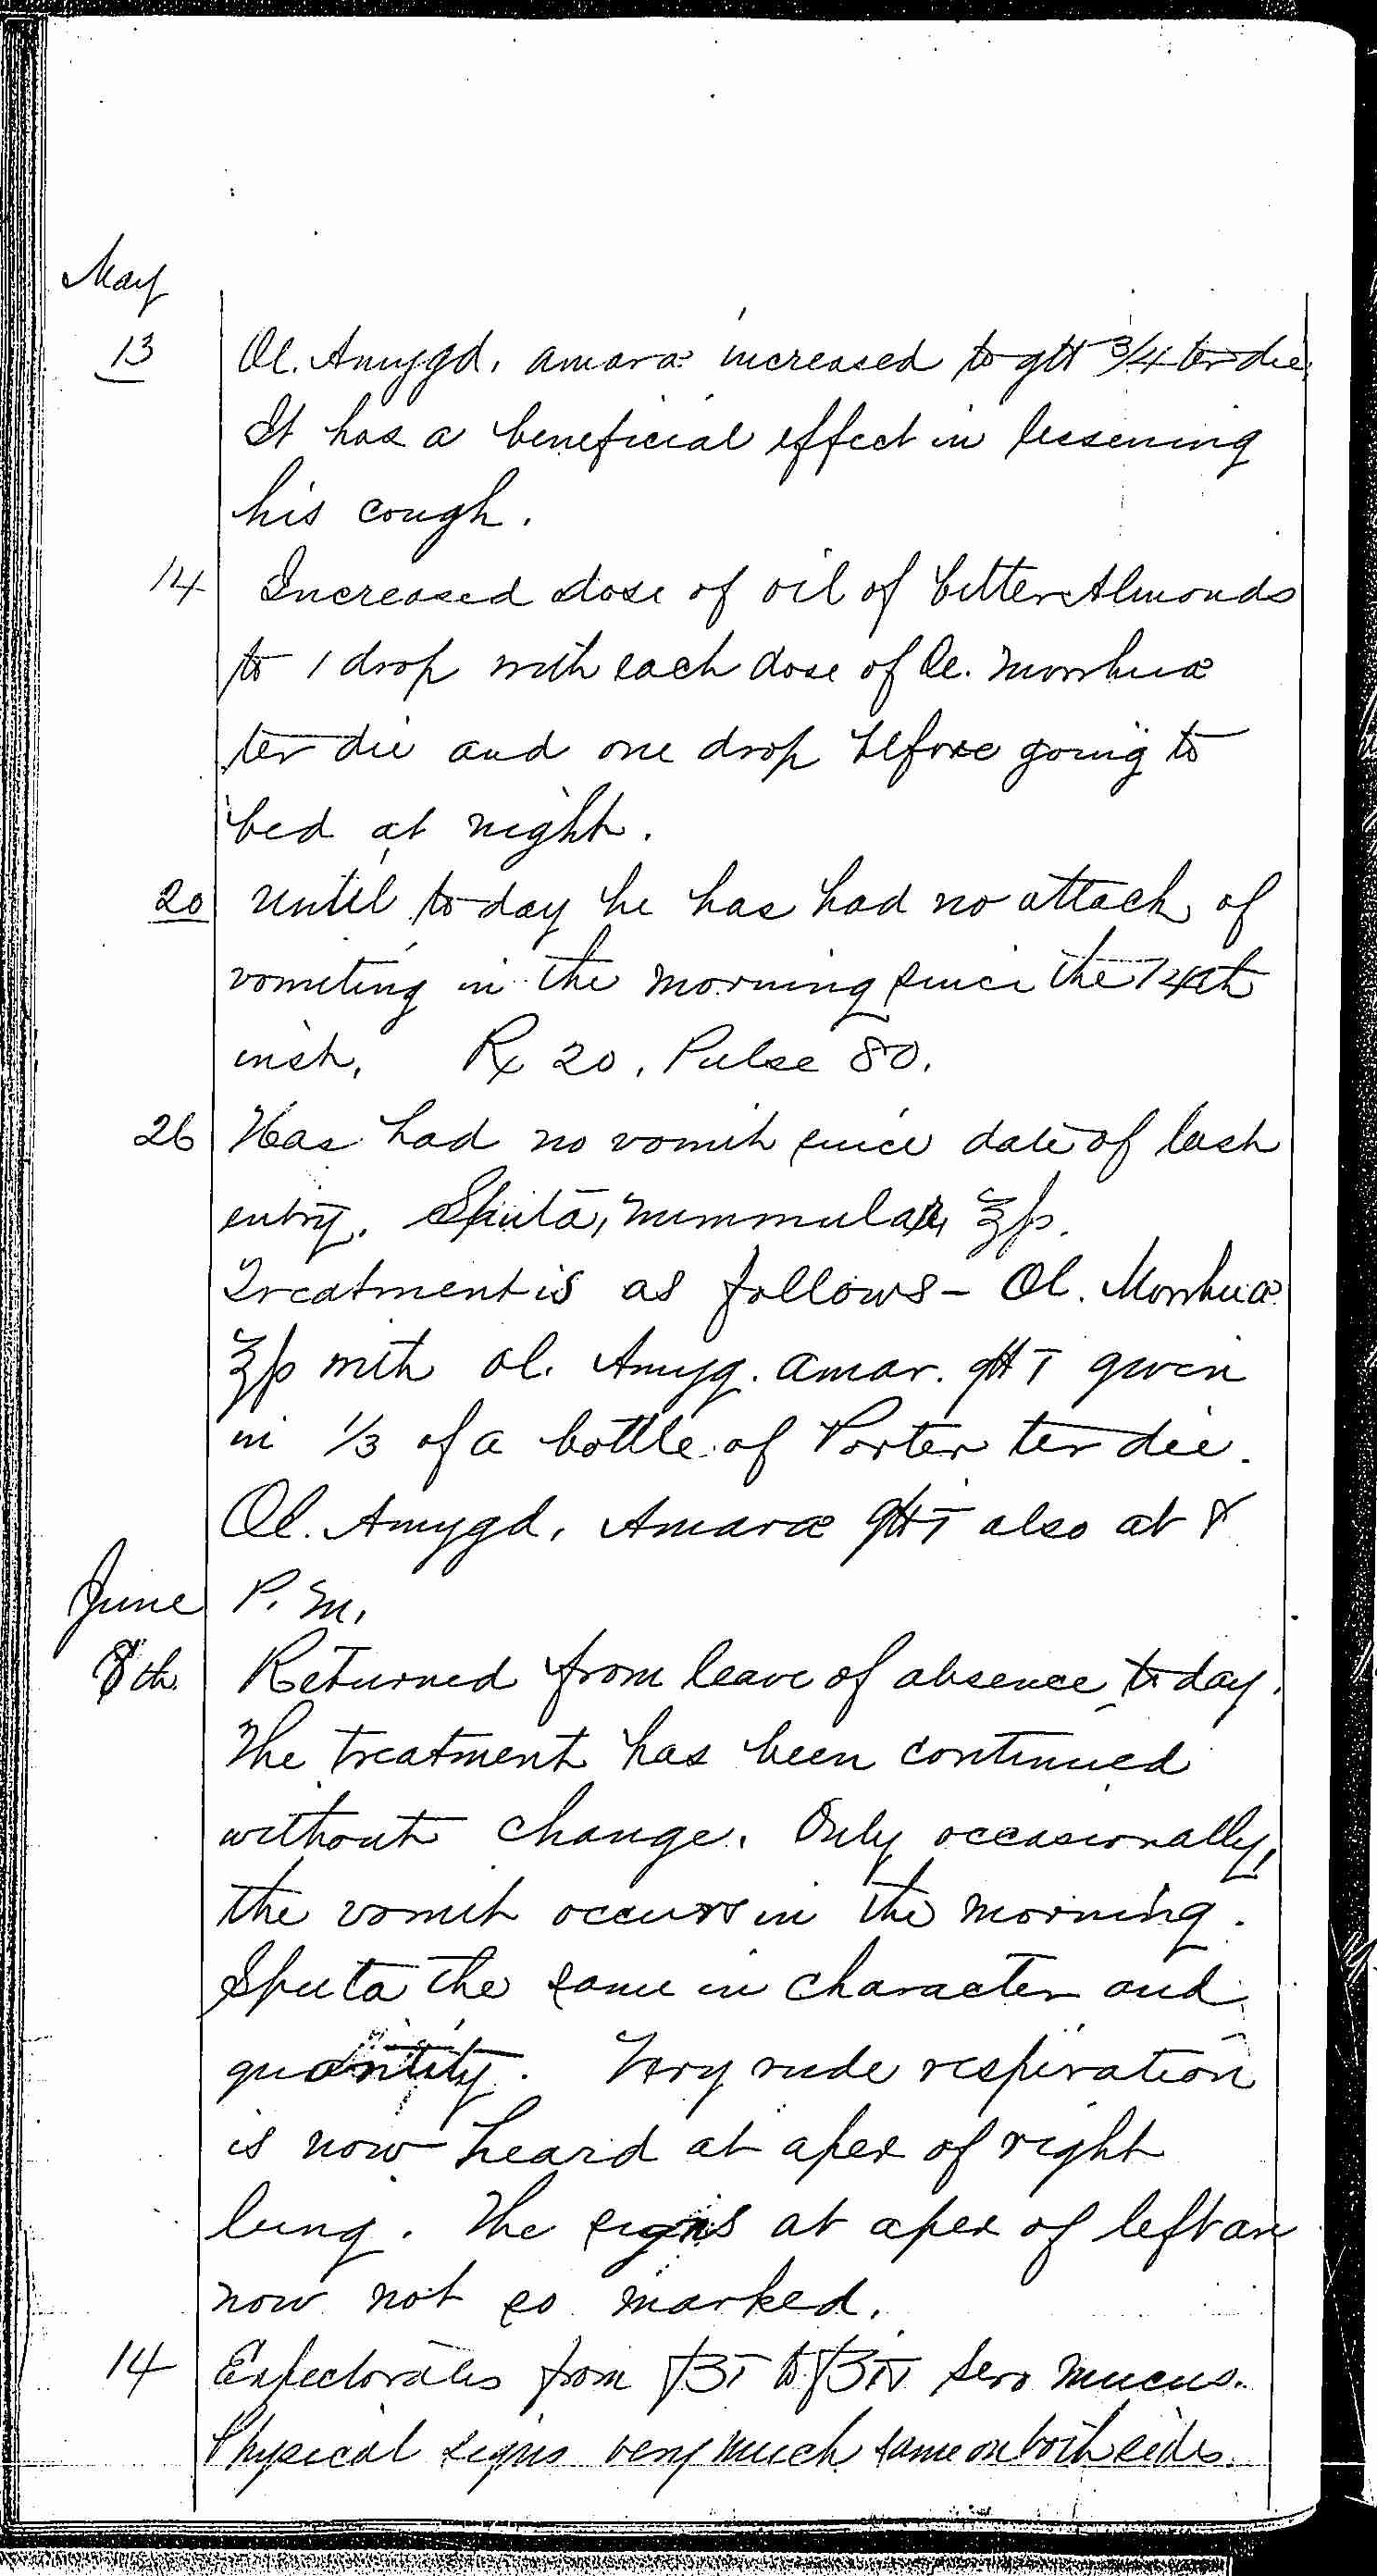 May
13 Ol. Amygd. amaræ increased to gtt 3/4 ter die.
It has a beneficial effect in lessening
his cough.
14 Increased dose of oil of bitter Almonds
to 1 drop with each dose of Ol. Morrhuæ
ter die and one drop before going to
bed at night.
20 Until to day he has had no attack of
vomiting in the morning since the 14th
inst. Rx 20. Pulse 80.
26 Has had no vomit since date of last
entry. Sputa, nummular, ℥ss.
Treatment is as follows - Ol. Morrhuæ
℥ss with ol. Amyg. amar. gtt i given
in 1/3 of a bottle of Porter ter die.
Ol. Amygd. Amaræ gtt i also at 8
June P. M.
8th. Returned from leave of absence to day.
The treatment has been continued
without change. Only occasionally,
the vomit occurs in the morning.
Sputa the same in character and
quantity. Very rude respiration
is now heard at apex of right
lung. The signs at apex of left are
now not so marked.
14 Expectorates from f℥i to f℥iv sero mucus.
Physical signs very much same on both sides.